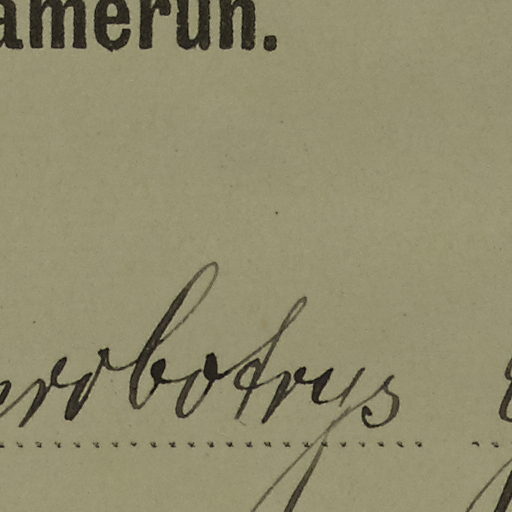 amerun.
robotrys